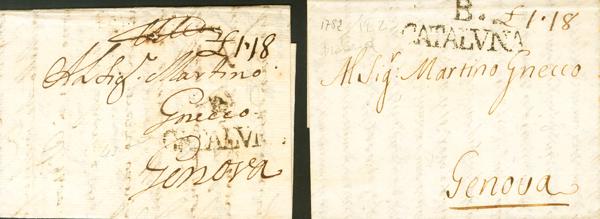 £1.18
Al Sigr. Martino
Gnecco
B.
CATALVÑA
Genova
1782
B.
£1.18
CATALVÑA
Al Sigr. Martino Gnecco
Genova